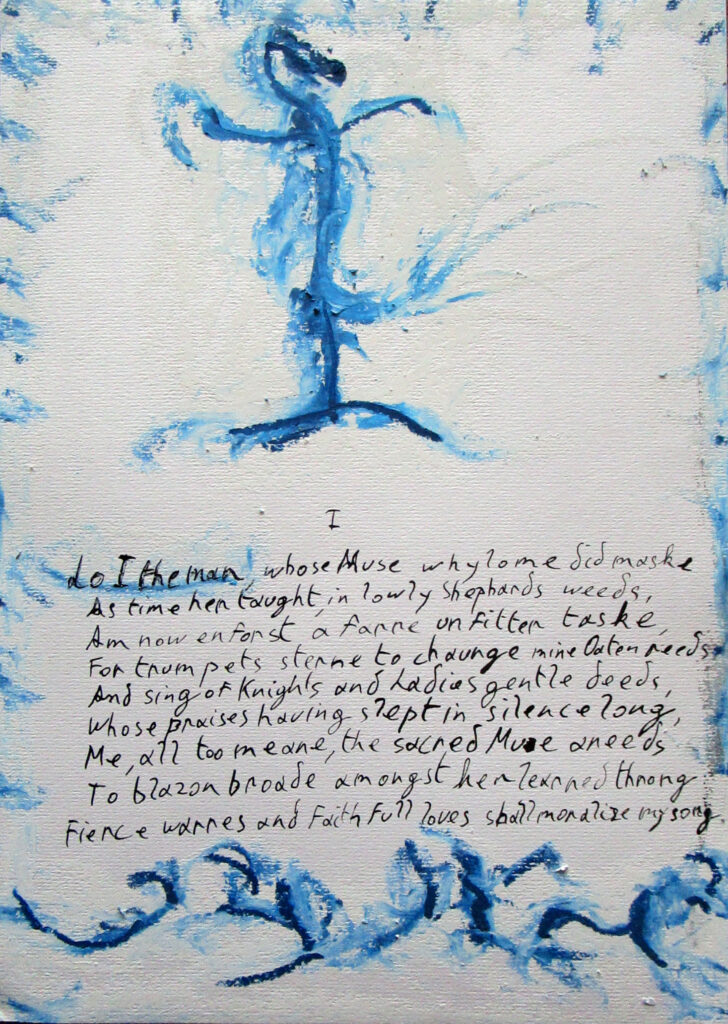 I
Lo I the man, whose Muse whylome did maske
As time her taught, in lowly Shephards weeds,
Am now enforst a farre unfitter taske,
For trumpets sterne to chaunge mine Oaten reeds
And sing of Knights and Ladies gentle deeds,
Whose praises having slept in silence long,
Me, all too meane, the sacred Muse areeds
To blazon broade amongst her learned throng
Fierce warres and faithfull loves shall moralize my song.